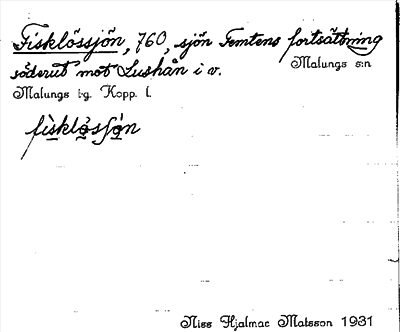 Fisklössjön, 760, sjön Femtens fortsättning
söderut mot Lushån i v. Malungs s:n
Malungs tg. Kopp. l.
fisklössjön
Niss Hjalmar Matsson 1931